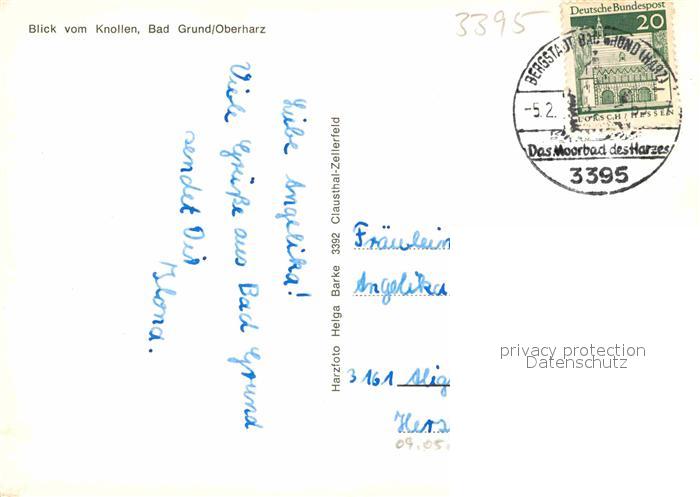 Blick vom Knollen, Bad Grund/Oberharz
3395
Deutsche Bundespost
20
LORSCH/HESSEN
BERGSTADT BAD GRUND (HARZ)
-5.2.
Das Moorbad des Harzes
3395
Liebe Angelika!
Viele Grüße aus Bad Grund
sendet Dir
Ilona.
Harzfoto Helga Barke 3392 Clausthal-Zellerfeld
Fräulein
Angelika
3161
Hers
09.05.
privacy protection
Datenschutz